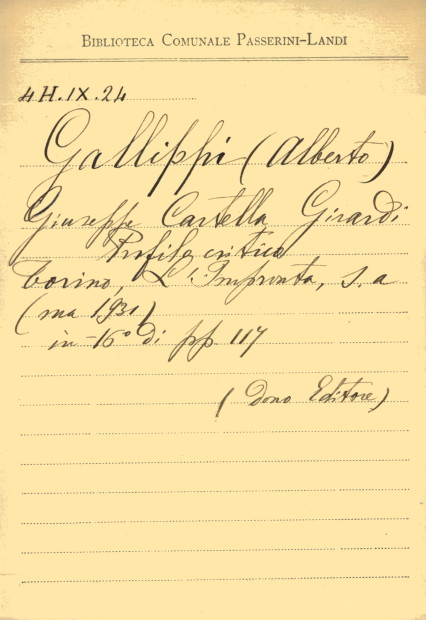 BIBLIOTECA COMUNALE PASSERINI-LANDI
4H.IX.24
Gallippi (Alberto)
Giuseppe Cartella Girardi
Profilo critico
Torino, L'Impronta, s.a
(ma 1931)
in-16° di pp 117
(Dono Editore)